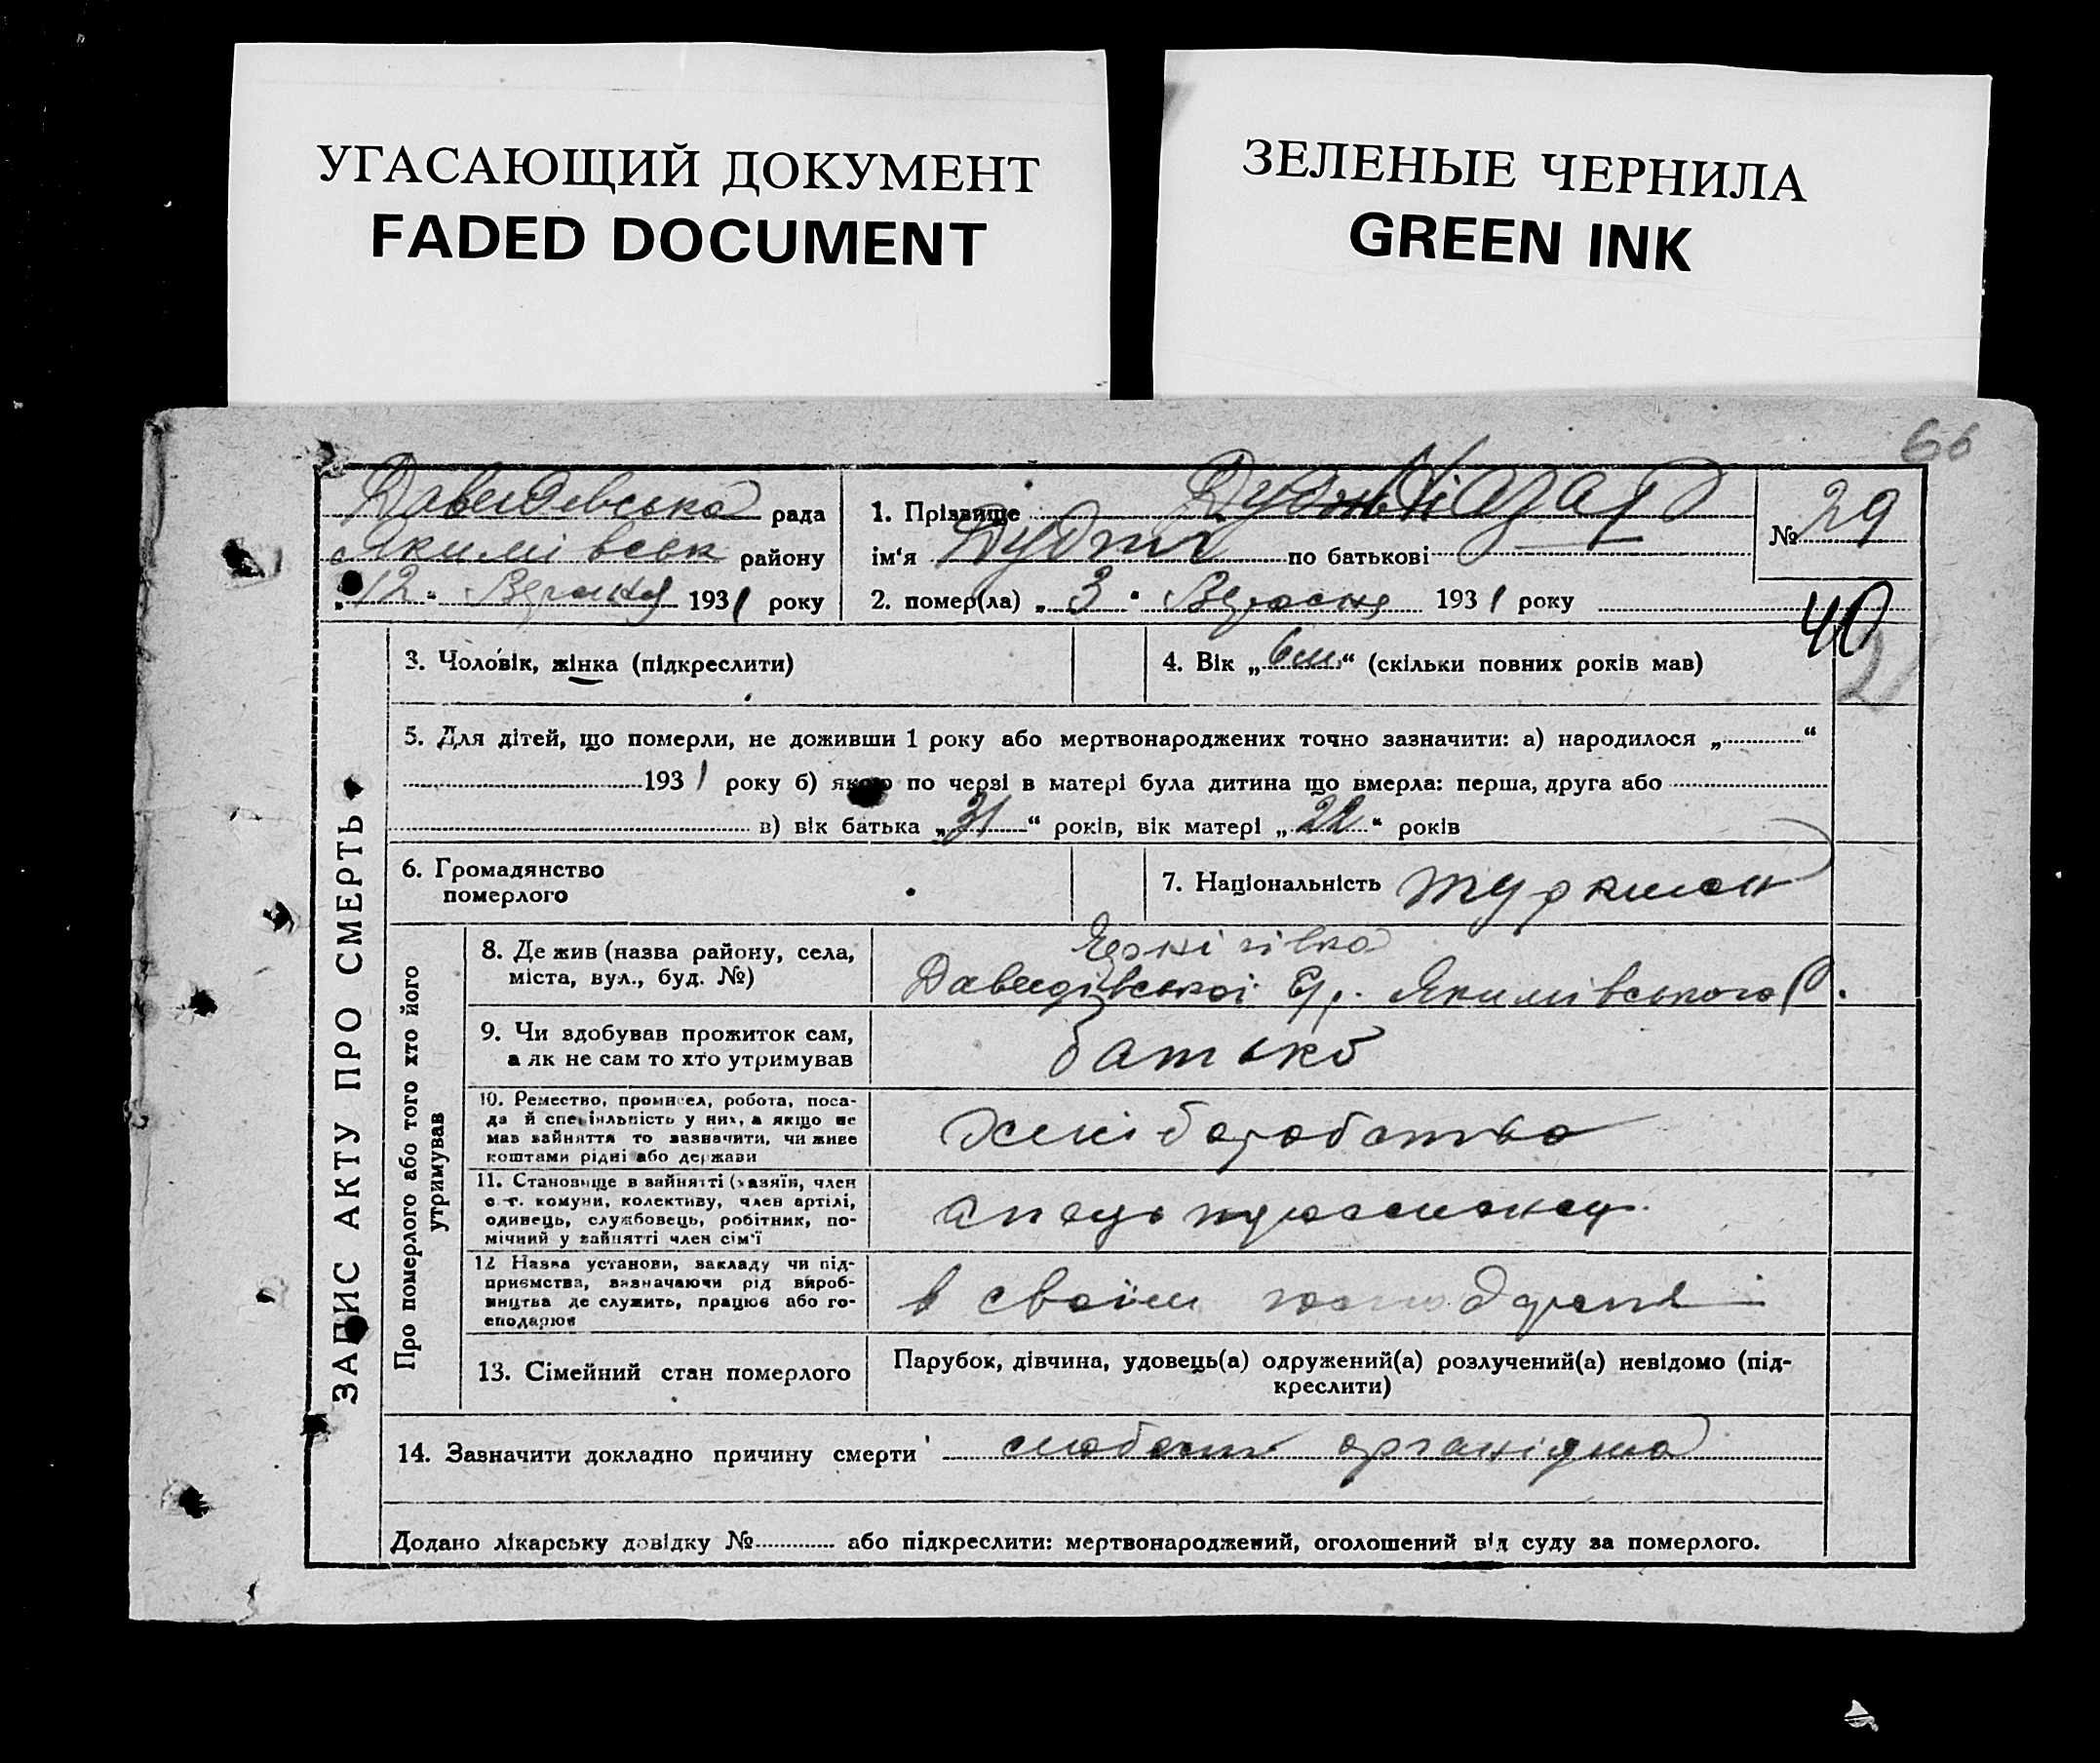 УГАСАЮЩИЙ ДОКУМЕНТ
FADED DOCUMENT
ЗЕЛЕНЫЕ ЧЕРНИЛА
GREEN INK
66
Давидівська рада
Якимівськ району
„12“ Вересня 1931 року
1. Прізвище
№ 29
ім‘я по батькові
2. помер(ла) „3“ Вересня 1931 року
40
2
ЗАПИС АКТУ ПРО СМЕРТЬ
3. Чоловік, жінка (підкреслити)
4. Вік „6м.“ (скільки повних років мав)
5. Для дітей, що померли, не доживши 1 року або мертвонароджених точно зазначити: а) народилося „ “
1931 року б) якою по черзі в матері була дитина що вмерла: перша, друга або
в) вік батька „31“ років, вік матері „ “ років
6. Громадянство
померлого
7. Національність
Про померлого або того хто його
утримував
8. Де жив (назва району, села,
міста, вул., буд. №)
Давидівської С/р. Якимівського Р.
9. Чи здобував прожиток сам,
а як не сам то хто утримував
батько
10. Ремество, промисел, робота, поса-
да й спеціяльність у них, а якщо не
мав зайняття то зазначити, чи живе
коштами рідні або держави
хліборобство
11. Становище в зайнятті (хазяїн, член
с.-г. комуни, колективу, член артілі,
одинець, службовець, робітник, по-
мічний у зайнятті член сім‘ї
12 Назва установи, закладу чи під-
приємства, зазначаючи рід вироб-
ництва де служить, працює або го-
сподарює
в своїм господарстві
13. Сімейний стан померлого
Парубок, дівчина, удовець(а) одружений(а) розлучений(а) невідомо (під-
креслити)
14. Зазначити докладно причину смерти слабість організма
Додано лікарську довідку № або підкреслити: мертвонароджений, оголошений від суду за померлого.